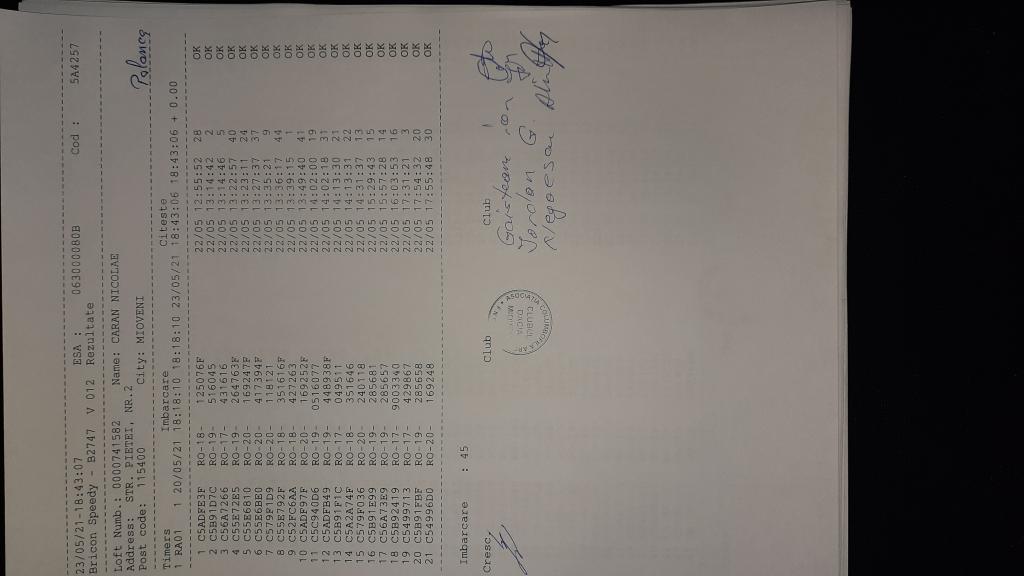 23/05/21-18:43:07 ESA : 063000080B Cod : 5A4257
Bricon Speedy - B2747 V 012 Rezultate
Loft Numb.: 0000741582 Name: CARAN NICOLAE
Address: STR. PIETEI, NR.2
Post code: 115400 City: MIOVENI
Polanca
Timers Imbarcare Citeste
1 RA01 1 20/05/21 18:18:10 18:18:10 23/05/21 18:43:06 18:43:06 + 0.00
1 C5ADFE3F RO-18- 125076F 22/05 12:55:52 28 OK
2 C5B91D7C RO-19- 516045 22/05 13:14:42 2 OK
3 C56A7266 RO-17- 431616 22/05 13:14:46 5 OK
4 C55E72E5 RO-19- 264763F 22/05 13:22:57 40 OK
5 C55E6810 RO-20- 169247F 22/05 13:23:11 24 OK
6 C55E6BE0 RO-20- 417394F 22/05 13:27:37 37 OK
7 C579F1D9 RO-20- 118121 22/05 13:35:21 9 OK
8 C55E792F RO-18- 351616F 22/05 13:36:17 44 OK
9 C52FC6AA RO-18- 427263 22/05 13:39:15 1 OK
10 C5ADF97F RO-20- 169252F 22/05 13:49:40 41 OK
11 C5C940D6 RO-19- 0516077 22/05 14:02:00 19 OK
12 C5ADFB49 RO-19- 448938F 22/05 14:02:18 31 OK
13 C5B91F1C RO-17- 049511 22/05 14:13:30 21 OK
14 C5A2A74F RO-18- 351646 22/05 14:13:31 22 OK
15 C579F036 RO-20- 240118 22/05 14:31:37 13 OK
16 C5B91E99 RO-19- 285681 22/05 15:29:43 15 OK
17 C56A73E9 RO-19- 285657 22/05 15:57:28 14 OK
18 C5B92419 RO-17- 9003340 22/05 16:03:53 16 OK
19 C5499713 RO-17- 429867 22/05 17:31:21 3 OK
20 C5B91FBF RO-19- 285658 22/05 17:54:32 20 OK
21 C54996D0 RO-20- 169248 22/05 17:55:48 30 OK
Imbarcare : 45
Cresc. Club Club
ASOCIATIA COLUMBOFILA
CLUBUL
DACIA
Ion
Iordan G.
Negoescu